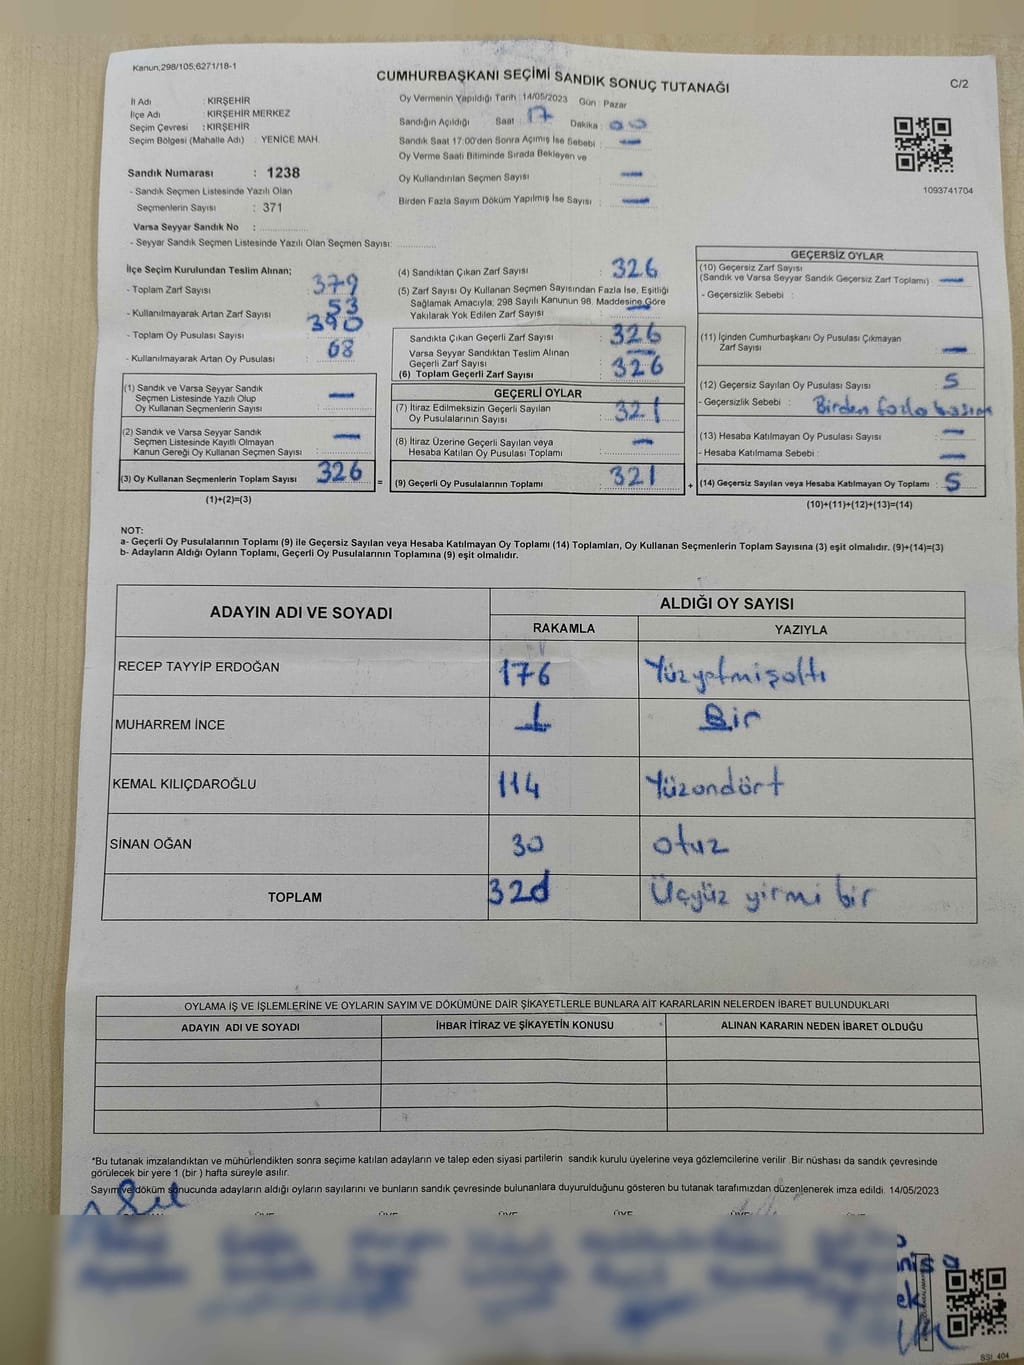 Kanun;298/105;6271/18-1
CUMHURBAŞKANI SEÇİMİ SANDIK SONUÇ TUTANAĞI
C/2
İl Adı : KIRŞEHİR
İlçe Adı : KIRŞEHİR MERKEZ
Seçim Çevresi : KIRŞEHİR
Seçim Bölgesi (Mahalle Adı) : YENİCE MAH.
Oy Vermenin Yapıldığı Tarih : 14/05/2023 Gün : Pazar
Sandığın Açıldığı Saat : 17 Dakika : 00
Sandık Saat 17:00'den Sonra Açımış İse Sebebi : —
Oy Verme Saati Bitiminde Sırada Bekleyen ve
Oy Kullandırılan Seçmen Sayısı : —
Birden Fazla Sayım Döküm Yapılmış İse Sayısı : —
1093741704
Sandık Numarası : 1238
- Sandık Seçmen Listesinde Yazılı Olan
Seçmenlerin Sayısı : 371
Varsa Seyyar Sandık No :
- Seyyar Sandık Seçmen Listesinde Yazılı Olan Seçmen Sayısı:
İlçe Seçim Kurulundan Teslim Alınan;
- Toplam Zarf Sayısı : 379
- Kullanılmayarak Artan Zarf Sayısı : 53
- Toplam Oy Pusulası Sayısı : 390
- Kullanılmayarak Artan Oy Pusulası : 68
(1) Sandık ve Varsa Seyyar Sandık
Seçmen Listesinde Yazılı Olup
Oy Kullanan Seçmenlerin Sayısı : —
(2) Sandık ve Varsa Seyyar Sandık
Seçmen Listesinde Kayıtlı Olmayan
Kanun Gereği Oy Kullanan Seçmen Sayısı : —
(3) Oy Kullanan Seçmenlerin Toplam Sayısı : 326 =
(1)+(2)=(3)
(4) Sandıktan Çıkan Zarf Sayısı : 326
(5) Zarf Sayısı Oy Kullanan Seçmen Sayısından Fazla İse, Eşitliği
Sağlamak Amacıyla; 298 Sayılı Kanunun 98. Maddesine Göre
Yakılarak Yok Edilen Zarf Sayısı : —
Sandıkta Çıkan Geçerli Zarf Sayısı : 326
Varsa Seyyar Sandıktan Teslim Alınan
Geçerli Zarf Sayısı : —
(6) Toplam Geçerli Zarf Sayısı : 326
GEÇERLİ OYLAR
(7) İtiraz Edilmeksizin Geçerli Sayılan
Oy Pusulalarının Sayısı : 321
(8) İtiraz Üzerine Geçerli Sayılan veya
Hesaba Katılan Oy Pusulası Toplamı : —
(9) Geçerli Oy Pusulalarının Toplamı : 321 +
GEÇERSİZ OYLAR
(10) Geçersiz Zarf Sayısı
(Sandık ve Varsa Seyyar Sandık Geçersiz Zarf Toplamı) : —
- Geçersizlik Sebebi :
(11) İçinden Cumhurbaşkanı Oy Pusulası Çıkmayan
Zarf Sayısı : —
(12) Geçersiz Sayılan Oy Pusulası Sayısı : 5
- Geçersizlik Sebebi : Birden fazla basım
(13) Hesaba Katılmayan Oy Pusulası Sayısı : —
- Hesaba Katılmama Sebebi : —
(14) Geçersiz Sayılan veya Hesaba Katılmayan Oy Toplamı : 5
(10)+(11)+(12)+(13)=(14)
NOT:
a- Geçerli Oy Pusulalarının Toplamı (9) ile Geçersiz Sayılan veya Hesaba Katılmayan Oy Toplamı (14) Toplamları, Oy Kullanan Seçmenlerin Toplam Sayısına (3) eşit olmalıdır. (9)+(14)=(3)
b- Adayların Aldığı Oyların Toplamı, Geçerli Oy Pusulalarının Toplamına (9) eşit olmalıdır.
ADAYIN ADI VE SOYADI ALDIĞI OY SAYISI
RAKAMLA YAZIYLA
RECEP TAYYİP ERDOĞAN 176 Yüzyetmişaltı
MUHARREM İNCE 1 Bir
KEMAL KILIÇDAROĞLU 114 Yüzondört
SİNAN OĞAN 30 otuz
TOPLAM 321 Üçyüz yirmi bir
OYLAMA İŞ VE İŞLEMLERİNE VE OYLARIN SAYIM VE DÖKÜMÜNE DAİR ŞİKAYETLERLE BUNLARA AİT KARARLARIN NELERDEN İBARET BULUNDUKLARI
ADAYIN ADI VE SOYADI İHBAR İTİRAZ VE ŞİKAYETİN KONUSU ALINAN KARARIN NEDEN İBARET OLDUĞU
*Bu tutanak imzalandıktan ve mühürlendikten sonra seçime katılan adayların ve talep eden siyasi partilerin sandık kurulu üyelerine veya gözlemcilerine verilir .Bir nüshası da sandık çevresinde
görülecek bir yere 1 (bir ) hafta süreyle asılır.
Sayım ve döküm sonucunda adayların aldığı oyların sayılarını ve bunların sandık çevresinde bulunanlara duyurulduğunu gösteren bu tutanak tarafımızdan düzenlenerek imza edildi. 14/05/2023
ÜYE ÜYE ÜYE ÜYE ÜYE ÜYE